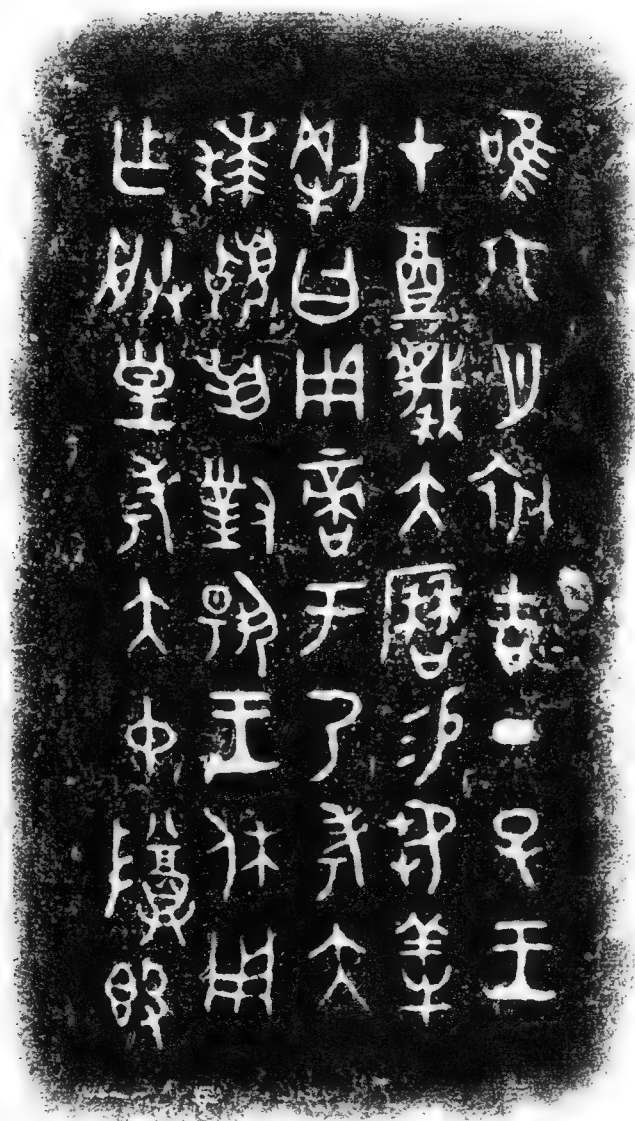 唯六月初吉丁子王
才奠蔑大曆易芻騂
犅曰用啻于乃考大
拜𩒨首對揚王休用
乍朕皇考大中尊簋